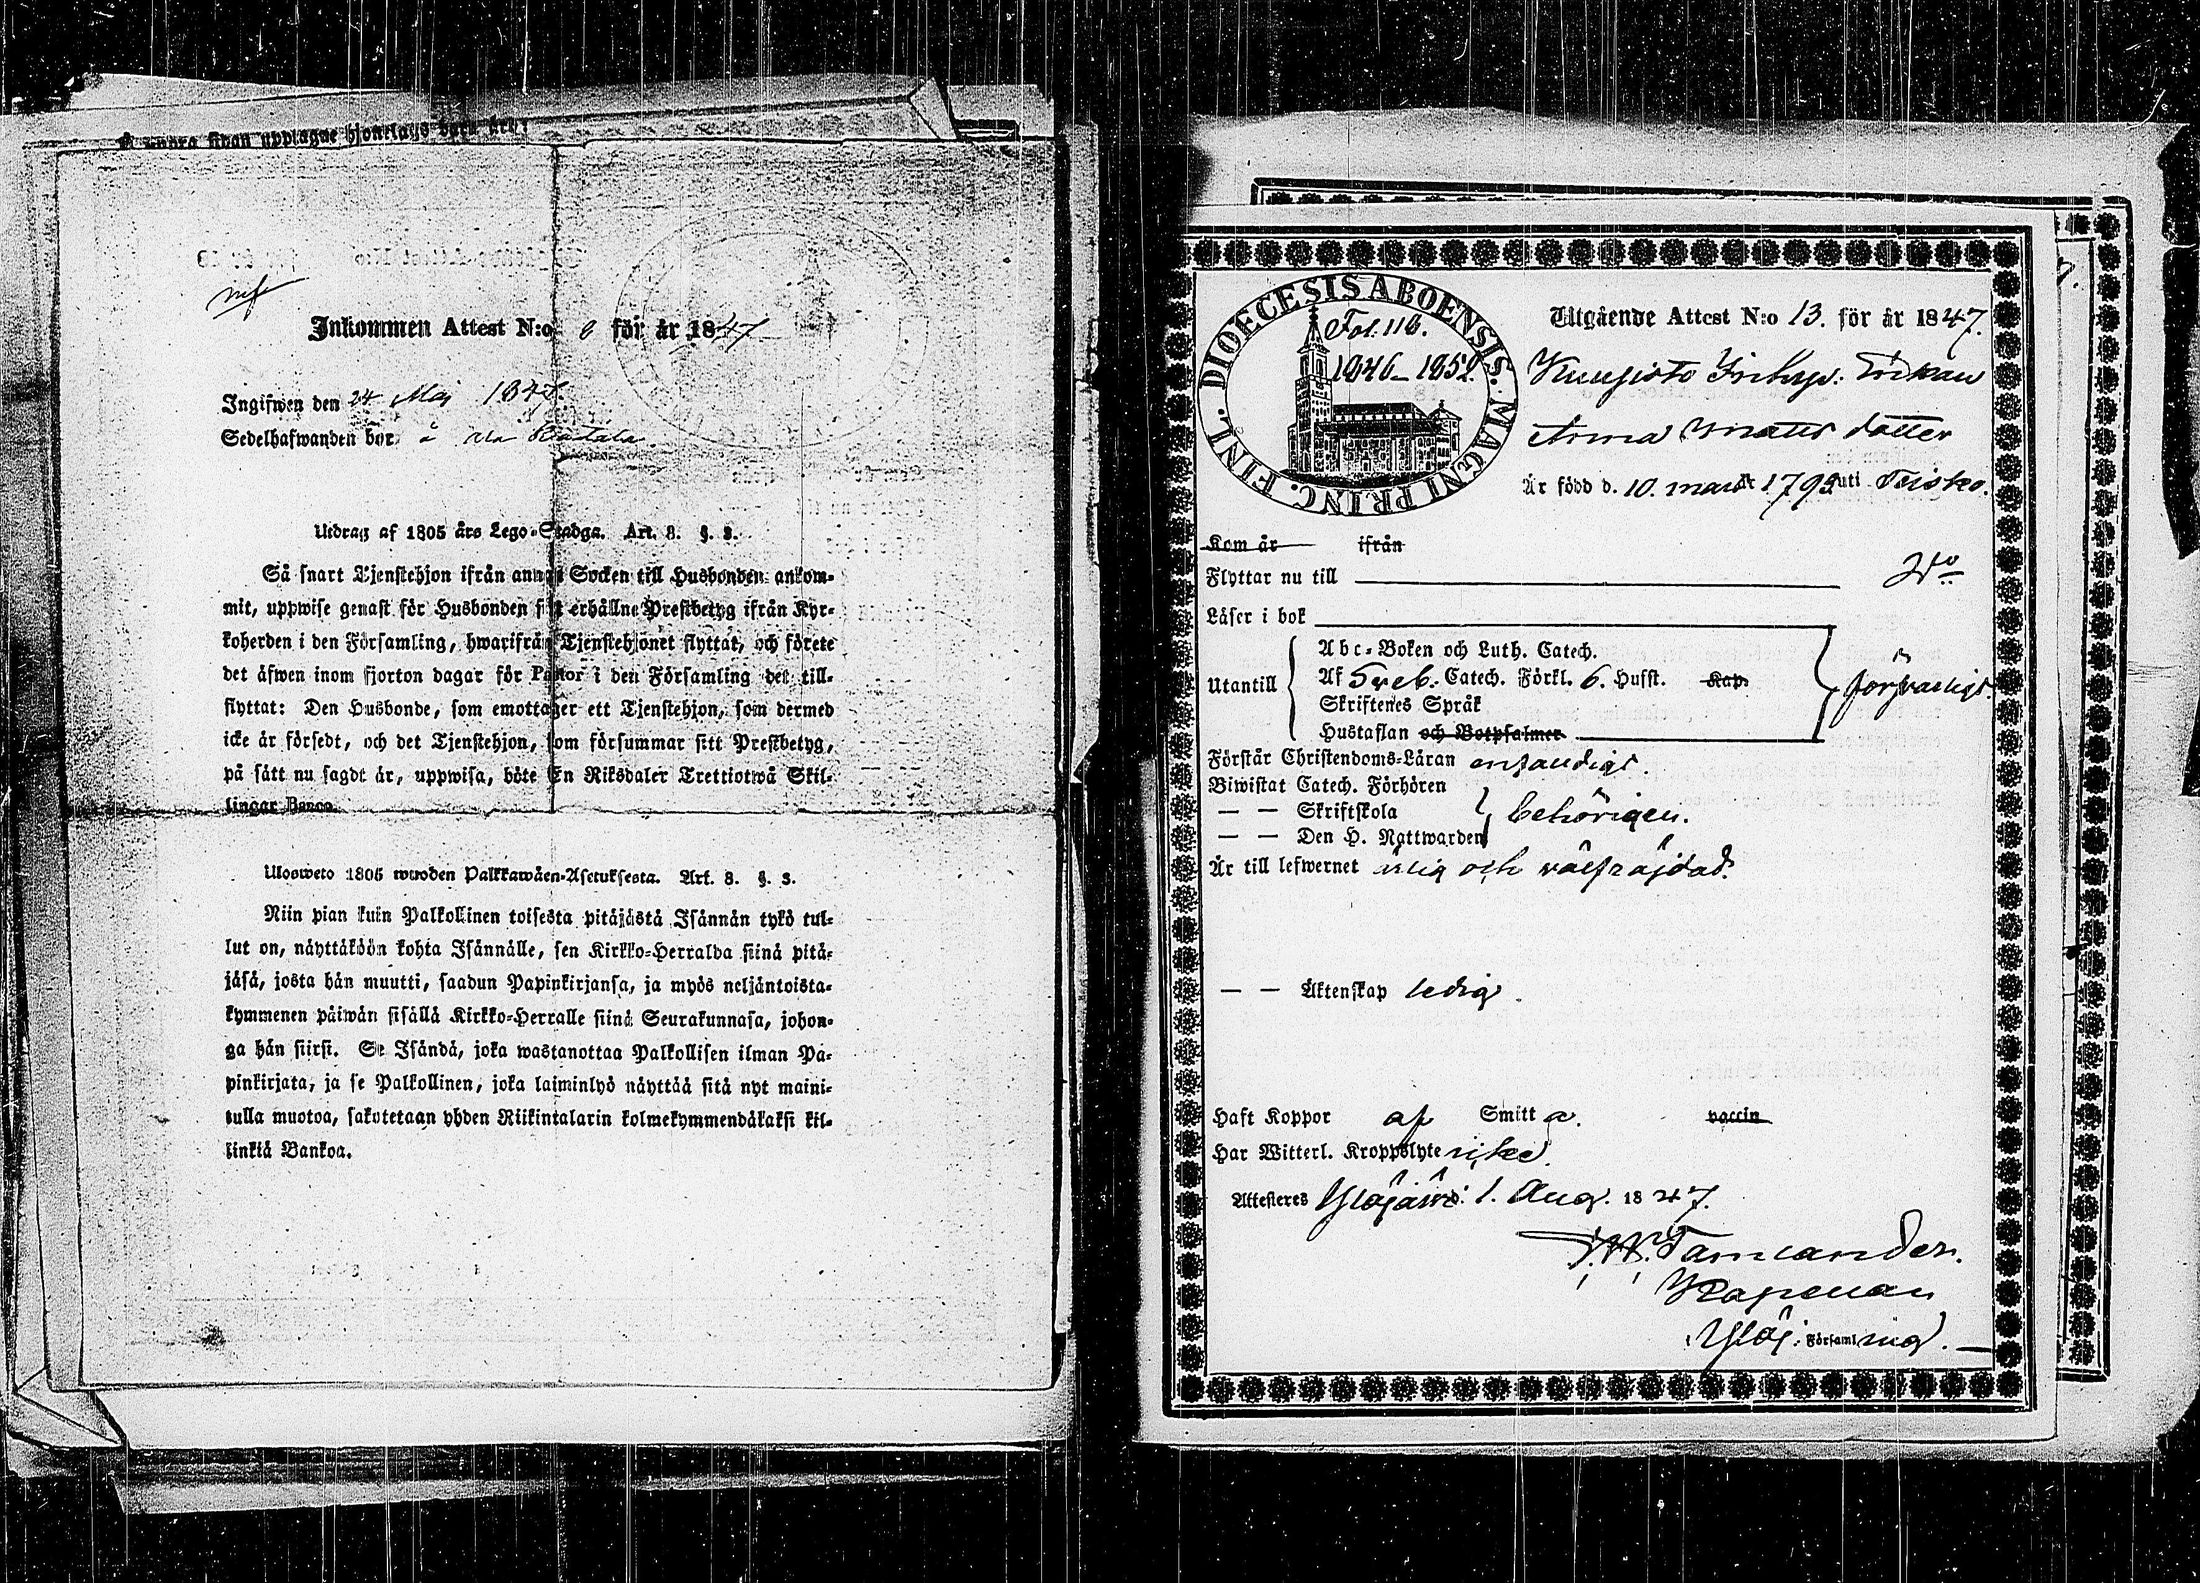 Inkommen Attest N:o 6 för år 1847
Ingifwen den 24 Maj 1847.
Sedelhafwanden bor å
Utdrag af 1805 års Lego-Stadga. Art. 8. §. 3.
Så snart Tjenstehjon ifrån annan Socken till Husbonden ankom-
mit, uppwise genast för Husbonden sitt erhållne Prestbetyg ifrån Kyr-
koherden i den Församling, hwarifrån Tjenstehjonet flyttat, och förete
det äfwen inom fjorton dagar för Pastor i den Församling det till-
flyttat: Den Husbonde, som emottager ett Tjenstehjon, som dermed
icke är försedt, och det Tjenstehjon, som försummar sitt Prestbetyg,
på sätt nu sagdt är, uppwisa, böte En Riksdaler Trettiotwå Skil-
lingar Banco.
Ulosweto 1805 wuoden Palkkawäen-Asetuksesta. Art. 8. §. 3.
Niin pian kuin Palkollinen toisesta pitäjästä Isännän tykö tul-
lut on, näyttäköön kohta Isännälle, sen Kirkko-Herralda siinä pitä-
jäsä, josta hän muutti, saadun Papinkirjansa, ja myös neljäntoista-
kymmenen päiwän sisällä Kirkko-Herralle siinä Seurakunnasa, johon-
ga hän siirsi. Se Isändä, joka wastanottaa Palkollisen ilman Pa-
pinkirjata, ja se Palkollinen, joka laiminlyö näyttää sitä nyt maini-
tulla muotoa, sakotetaan yhden Riikintalarin kolmekymmendäkaksi kil-
linkiä Bankoa.
DIOECESIS ABOENSIS. MAGNI PRINC. FINL.
Fol. 116.
1846-1852.
Utgående Attest N:o 13. för år 1847.
Anna Mats dotter
Är född d. 10. mars 1795 uti Teisko.
Kom år ifrån
Flyttar nu till
Läser i bok
Utantill
Abc-Boken och Luth. Catech.
Af Sveb. Catech. Förkl. 6. Hufst. Kap.
Skriftenes Språk
Hustaflan och Botpsalmer
försvarligt.
Förstår Christendoms-Läran enfaldigt.
Biwistat Catech. Förhören
— — Skriftskola
— — Den H. Nattwarden
behörigen.
Är till lefwernet ärlig och välfräjdad.
— — Äktenskap ledig.
Haft Koppor af Smitta. vaccin
Har Witterl. Kroppslyte icke.
Attesteres Ylöjärvi d. 1. Aug. 1847.
Kapellan
Ylöj: Församling.